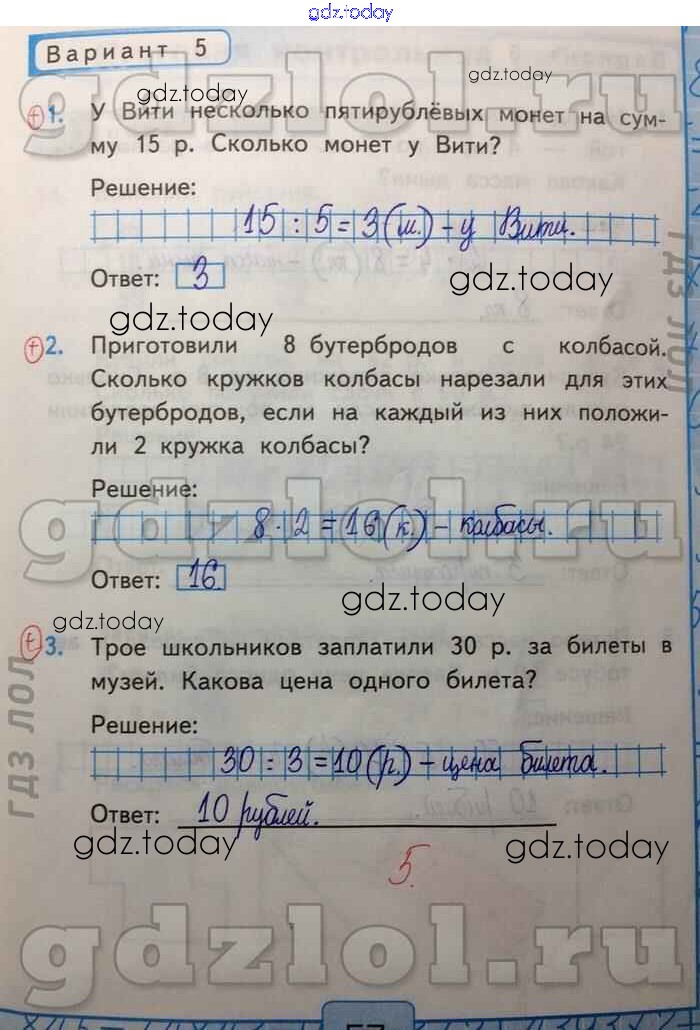 gdz.today
Вариант 5
gdzlol.ru
gdz.today
gdz.today
1. У Вити несколько пятирублёвых монет на сум-
му 15 р. Сколько монет у Вити?
Решение:
15 : 5 = 3 (м.) – у Вити.
Ответ: 3
gdz.today
gdz.today
ГДЗ ЛОЛ
2. Приготовили 8 бутербродов с колбасой.
Сколько кружков колбасы нарезали для этих
бутербродов, если на каждый из них положи-
ли 2 кружка колбасы?
Решение:
gdzlol.ru
8 · 2 = 16 (к.) – колбасы.
Ответ: 16
gdz.today
gdz.today
3. Трое школьников заплатили 30 р. за билеты в
музей. Какова цена одного билета?
ГДЗ ЛОЛ
Решение:
30 : 3 = 10 (р.) – цена билета.
Ответ: 10 рублей.
gdz.today
gdz.today
5.
gdzlol.ru